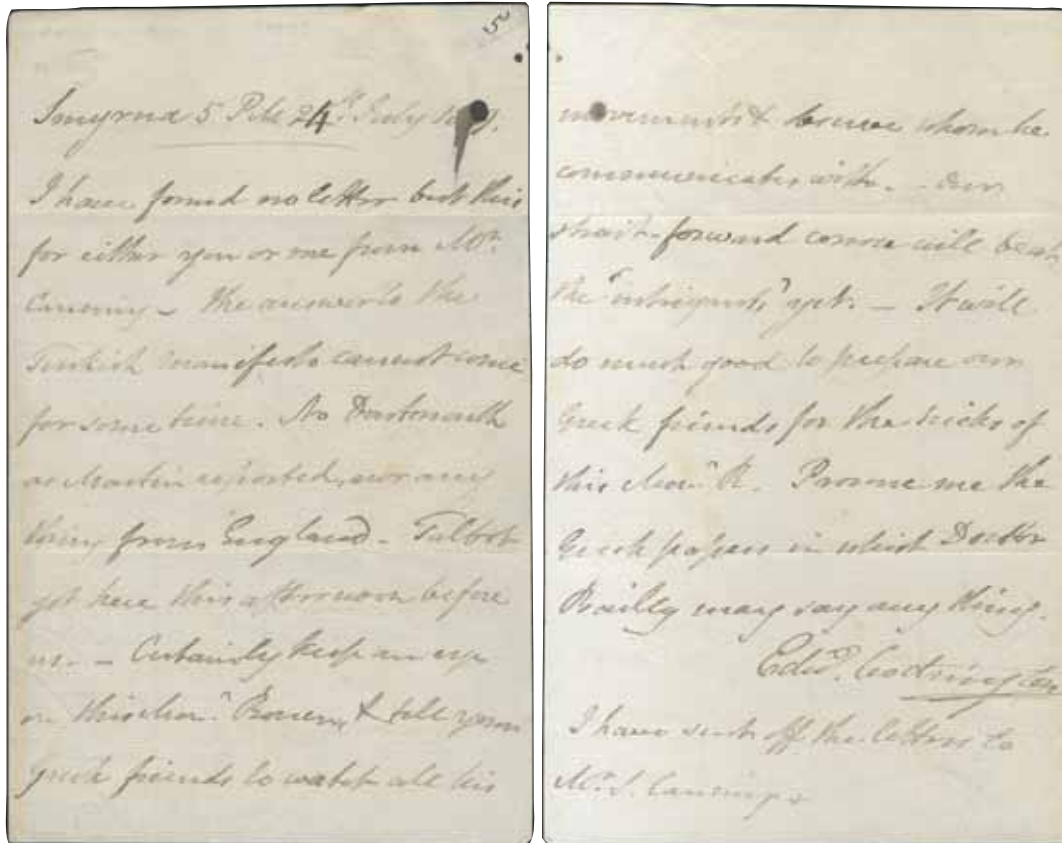 5
Smyrna 5 P.M. 24th July
I have found no letter but this
for either you or me from Mr.
Canning - the answer to the
Turkish manifesto cannot come
for some time. No Dartmouth
as Martin reported, nor any
thing from England - Talbot
got here this afternoon before
us. - Certainly keep an eye
on this Monr. & tell your
greek friends to watch all his
movements & whom he
communicates with. - Our
strait-forward course will beat
the "intriguants" yet. - It will
do much good to prepare our
Greek friends for the tricks of
this Monr. R. Procure me the
Greek papers in which Doctor
Bailly may say any thing.
Edwd. Codrington
I have sent off the letters to
Mr. S. Canning